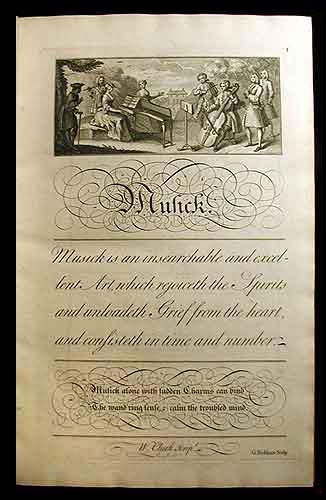 1
Musick.
Musick is an insearchable and excel-
lent Art, which rejoyceth the Spirits
and unloadeth Grief from the heart,
and consisteth in time and number.
Musick alone with sudden Charms can bind
The wand'ring sense, & calm the troubled mind.
W. Clark Scrip.^t
G. Bickham Sculp.